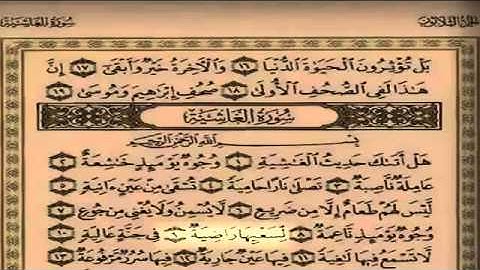 سورة الغاشية الجزء الثلاثون
بَلْ تُؤْثِرُونَ الْحَيَوٰةَ الدُّنْيَا ١٦ وَالْآخِرَةُ خَيْرٌ وَأَبْقَىٰ ١٧ إِنَّ
هَٰذَا لَفِي الصُّحُفِ الْأُولَىٰ ١٨ صُحُفِ إِبْرَاهِيمَ وَمُوسَىٰ ١٩
سُورَةُ الْغَاشِيَةِ
بِسْمِ اللَّهِ الرَّحْمَٰنِ الرَّحِيمِ
هَلْ أَتَىٰكَ حَدِيثُ الْغَٰشِيَةِ ١ وُجُوهٌ يَوْمَئِذٍ خَٰشِعَةٌ ٢
عَامِلَةٌ نَّاصِبَةٌ ٣ تَصْلَىٰ نَارًا حَامِيَةً ٤ تُسْقَىٰ مِنْ عَيْنٍ ءَانِيَةٍ ٥
لَّيْسَ لَهُمْ طَعَامٌ إِلَّا مِن ضَرِيعٍ ٦ لَّا يُسْمِنُ وَلَا يُغْنِي مِن جُوعٍ ٧
وُجُوهٌ يَوْمَئِذٍ نَّاعِمَةٌ ٨ لِّسَعْيِهَا رَاضِيَةٌ ٩ فِي جَنَّةٍ عَالِيَةٍ ١٠
لَّا تَسْمَعُ فِيهَا لَٰغِيَةً ١١ فِيهَا عَيْنٌ جَارِيَةٌ ١٢ فِيهَا سُرُرٌ مَّرْفُوعَةٌ ١٣